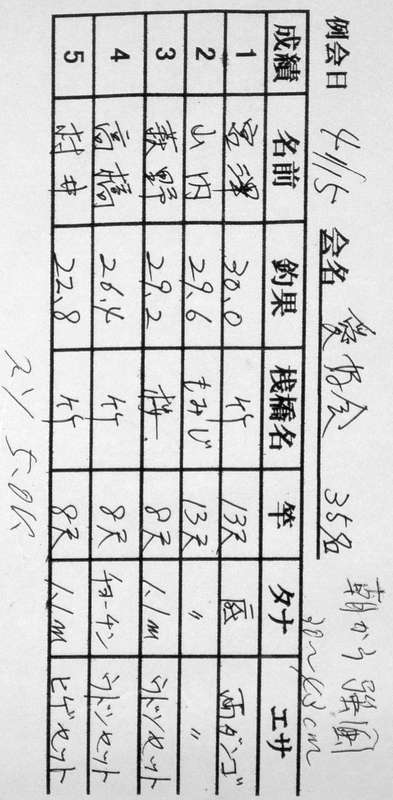 例会日 4/15 会名 愛好会 35名
朝から強風
38〜43cm
成績 名前 釣果 桟橋名 竿 タナ エサ
1 宮澤 30.0 竹 13尺 底 両ダンゴ
2 山内 29.6 もみじ 13尺 〃 〃
3 荻野 29.2 桟 8尺 1.1m ウドンセット
4 高橋 26.4 竹 8尺 チョーチン ウドンセット
5 村井 22.8 竹 8尺 1.1m ヒゲセット
5.0K